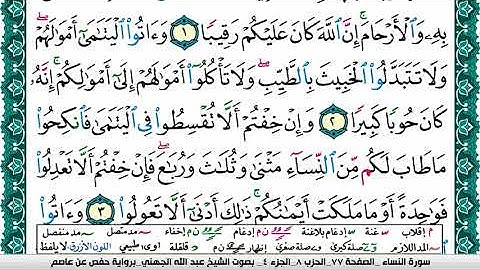 بِهِۦ وَٱلْأَرْحَامَ إِنَّ ٱللَّهَ كَانَ عَلَيْكُمْ رَقِيبًا ١ وَءَاتُوا۟ ٱلْيَتَٰمَىٰٓ أَمْوَٰلَهُمْ
وَلَا تَتَبَدَّلُوا۟ ٱلْخَبِيثَ بِٱلطَّيِّبِ وَلَا تَأْكُلُوٓا۟ أَمْوَٰلَهُمْ إِلَىٰٓ أَمْوَٰلِكُمْ إِنَّهُۥ
كَانَ حُوبًا كَبِيرًا ٢ وَإِنْ خِفْتُمْ أَلَّا تُقْسِطُوا۟ فِى ٱلْيَتَٰمَىٰ فَٱنكِحُوا۟
مَا طَابَ لَكُم مِّنَ ٱلنِّسَآءِ مَثْنَىٰ وَثُلَٰثَ وَرُبَٰعَ فَإِنْ خِفْتُمْ أَلَّا تَعْدِلُوا۟
فَوَٰحِدَةً أَوْ مَا مَلَكَتْ أَيْمَٰنُكُمْ ذَٰلِكَ أَدْنَىٰٓ أَلَّا تَعُولُوا۟ ٣ وَءَاتُوا۟
إقلاب غنة إدغام بلاغنة إدغام بغنة إخفاء مد متصل مد منفصل
المد اللازم صلة كبرى صلة صغرى إظهار قلقلة أوى طبيعي اللون الأزرق لا يلفظ
سورة النساء _ الصفحة ٧٧_ الحزب ٨_ الجزء ٤_ بصوت الشيخ عبد الله الجهني_ برواية حفص عن عاصم